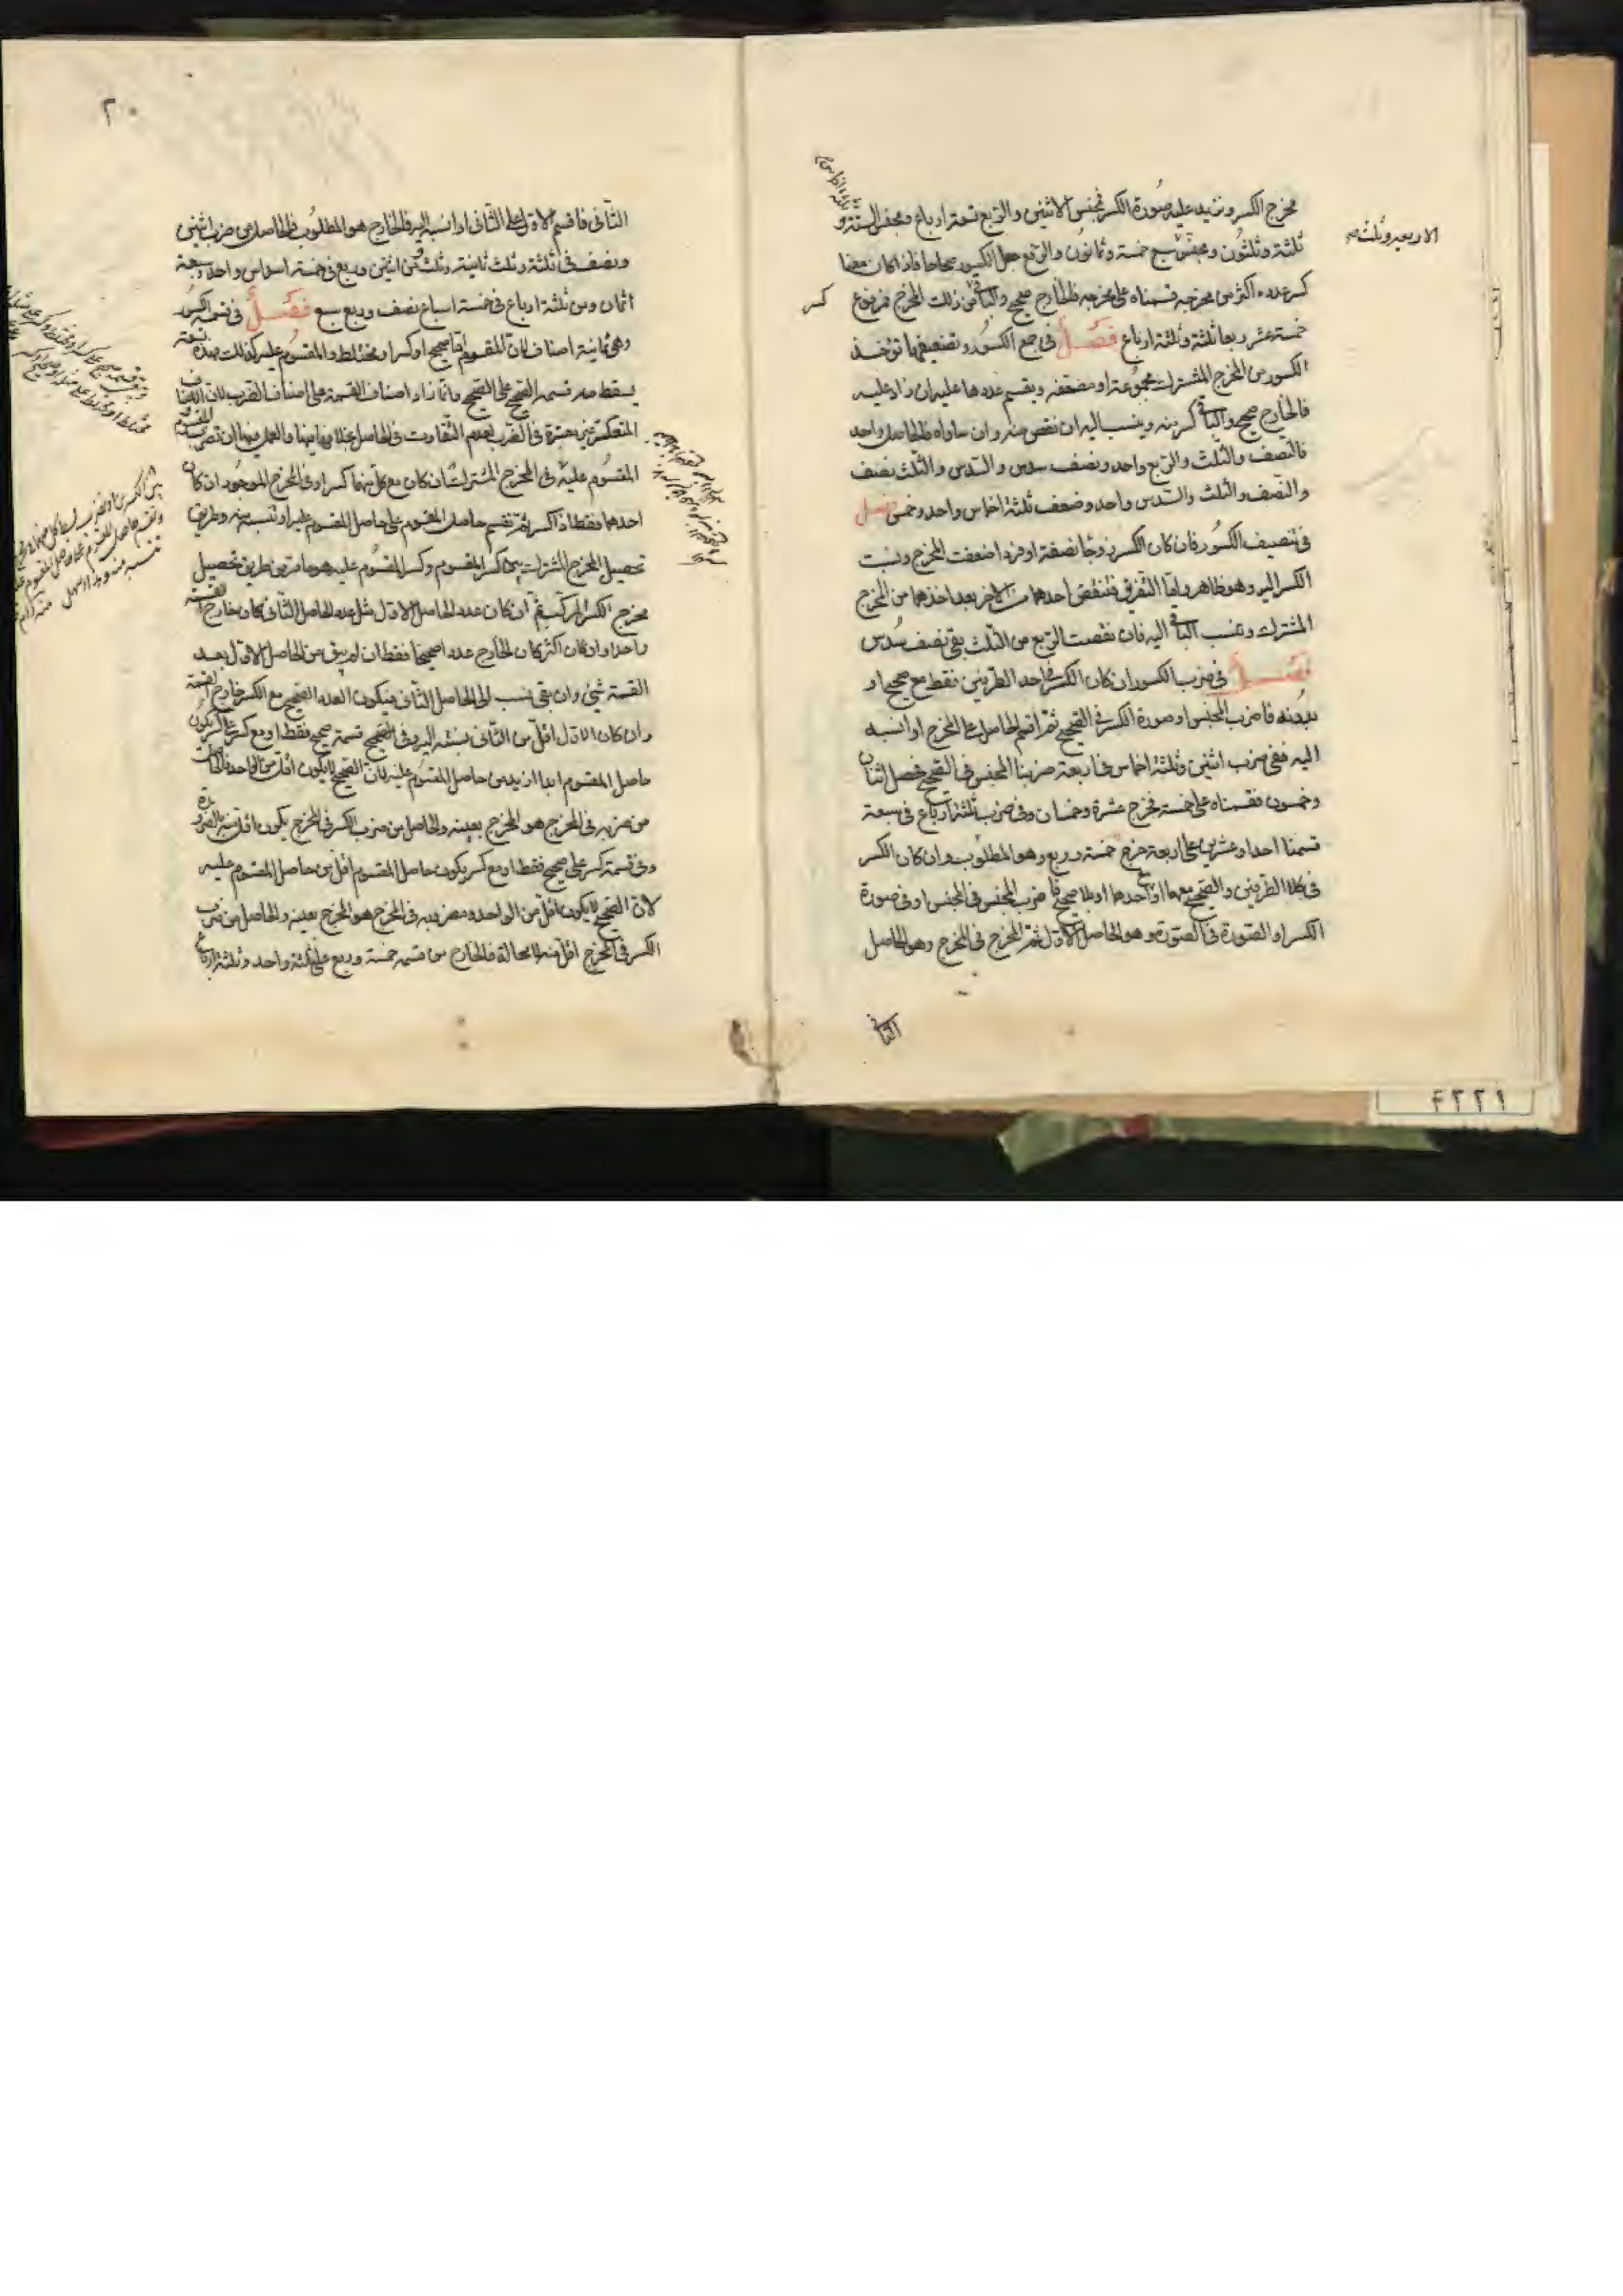 مخرج الكسر ونزيد عليه صورة الكسر فمجنس الاثنين والربع تسعة ارباع ومجنس الستة و
ثلثة وثلثون ومجنس سبع خمسة وثمانون والرفع جعل الكسور صحاحا فاذا كان معنا
كسر عدده اكثر من مخرجه قسمناه على مخرجه فالخارج صحيح والباقى من ذلك المخرج فمرفوع
خمسة عشر ربعا ثلثة وثلثة ارباع فصل فى جمع الكسور وتضعيفها تؤخذ
الكسور من المخرج المشترك مجموعة او مضعفة ويقسم عددها عليه ان زاد عليه
فالخارج صحيح والباقى كسر منه وينسب اليه ان نقص منه وان ساواه فالحاصل واحد
فالنصف والثلث والربع واحد ونصف سدس والسدس والثلث نصف
والنصف والثلث والسدس واحد وضعف ثلثة اخماس واحد وخمس فصل
فى تنصيف الكسور فان كان الكسر زوجا نصفته او فردا ضعفت المخرج ونسبت
الكسر اليه وهو ظاهر واما التفريق فتنقص احدهما من الاخر بعد اخذهما من المخرج
المشترك وتنسب الباقى اليه فان نقصت الربع من الثلث بقى نصف سدس
فصل فى ضرب الكسور ان كان الكسر فى احد الطرفين فقط مع صحيح او
بدونه فاضرب المجنس او صورة الكسر فى الصحيح ثم اقسم الحاصل على المخرج او انسبه
اليه ففى ضرب اثنين وثلثة اخماس فى اربعة ضربنا المجنس فى الصحيح فحصل اثنان
وخمسون فقسمناه على خمسة فخرج عشرة وخمسان وفى ضرب ثلثة ارباع فى سبعة
قسمنا احدا وعشرين على اربعة خرج خمسة وربع وهو المطلوب وان كان الكسر
فى كلا الطرفين والصحيح معهما او مع احدهما او بلا صحيح فاضرب المجنس فى المجنس او فى صورة
الكسر او الصورة فى الصورة وهو الحاصل الاول ثم المخرج فى المخرج وهو الحاصل
الثانى
الاربعة وثلث صح
كسر
٢٠
الثانى فاقسم الاول على الثانى او انسبه اليه فالخارج هو المطلوب فالحاصل من ضرب اثنين
ونصف فى ثلثة وثلث ثمانية وثلث ومن اثنين وربع فى خمسة اسداس واحد وسبعة
اثمان ومن ثلثة ارباع فى خمسة اسباع نصف وربع سبع فصل فى قسمة الكسور
وهى ثمانية اصناف لان المقسوم اما صحيح او كسر او مختلط والمقسوم عليه كذلك فهذه تسعة
يسقط منه قسمة الصحيح على الصحيح وانما زاد اصناف القسمة على اصناف الضرب لان الاصناف
المتعكسة غير معتبرة فى الضرب لعدم التفاوت فى الحاصل بخلافها هنا والعمل فيها ان تضرب المقسوم
المقسوم عليه فى المخرج المشترك ان كان مع كل منهما كسر او فى المخرج الموجود ان كان
احدهما فقط ذا كسر ثم تقسم حاصل المقسوم على حاصل المقسوم عليه او تنسبه منه وطريق
تحصيل المخرج المشترك بين كسر المقسوم وكسر المقسوم عليه هو ما مر من طريق تحصيل
مخرج الكسر المركب ثم ان كان عدد الحاصل الاول مثل عدد الحاصل الثانى كان خارج القسمة
واحدا وان كان اكثر كان الخارج عددا صحيحا فقط ان لم يبق من الحاصل الاول بعد
القسمة شئ وان بقى نسب الى الحاصل الثانى فيكون العدد الصحيح مع الكسر خارج القسمة
وان كان الاول اقل من الثانى ينسبه اليه وفى الصحيح قسمة صحيح فقط او مع كسر على كسر يكون
حاصل المقسوم ابدا ازيد من حاصل المقسوم عليه لان الصحيح لا يكون اقل من الواحد فالحاصل
من ضربه فى المخرج هو المخرج بعينه والحاصل من ضرب الكسر فى المخرج يكون اقل منه بالضرورة
وفى قسمة كسر على صحيح فقط او مع كسر يكون حاصل المقسوم اقل من حاصل المقسوم عليه
لان الصحيح لا يكون اقل من الواحد ومضروبه فى المخرج هو المخرج بعينه والحاصل من ضرب
الكسر فى المخرج اقل منه لا محالة فالخارج من قسمة خمسة وربع على ثلثة واحد وثلثة ارباع